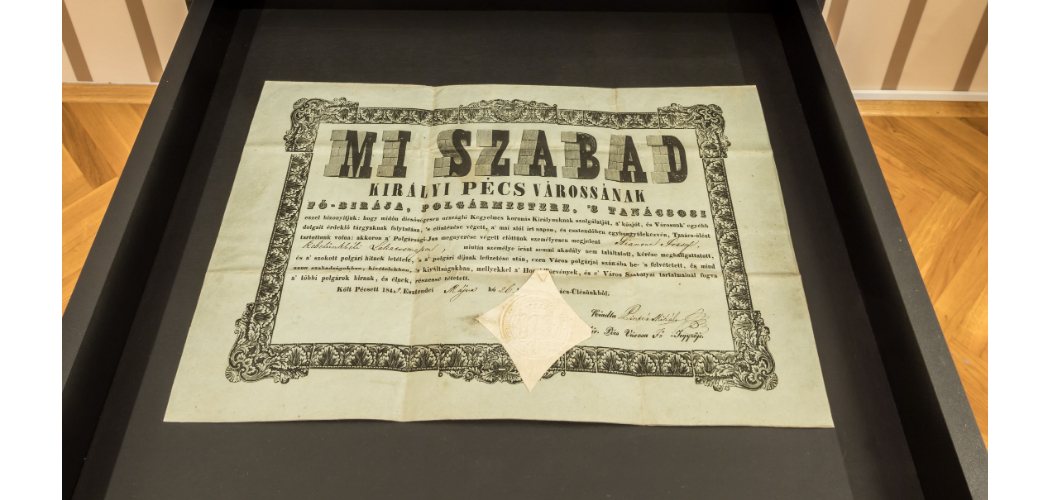 MI SZABAD
KIRÁLYI PÉCS VÁROSSÁNAK
FŐ-BIRÁJA, POLGÁRMESTERE, 'S TANÁCSOSI
ezzel bizonyitjuk: hogy midőn dicsőségesen országló Kegyelmes koronás Királyunknak szolgálatját, a' közjót, és Városunk' egyébb
dolgait érdeklő tárgyaknak folytatása, 's ellátása végett, a' mai alól irt napon, és esztendőben egybengyülekezvén, Tanács-ülést
tartottunk volna; akkoron a' Polgársági-Jus megnyerése végett előttünk személyesen megjelent
miután személye iránt semmi akadály nem találtatott, kérése meghallgattatott,
és a' szokott polgári hitnek letétele, 's a' polgári díjnak lefizetése után, ezen Város polgárjai számába be- 's felvétetett, és mind
azon szabadságokban, 's kiváltságokban, mellyekkel a' Törvények, és a' Város Szabályai tartalmánál fogva
a' többi polgárok birnak, és élnek, részessé tétetett.
Költ Pécsett 184 Esztendei Május hó 26 Ülésünkből.
Kiadta
Pécs Városa Fő Jegyzője.